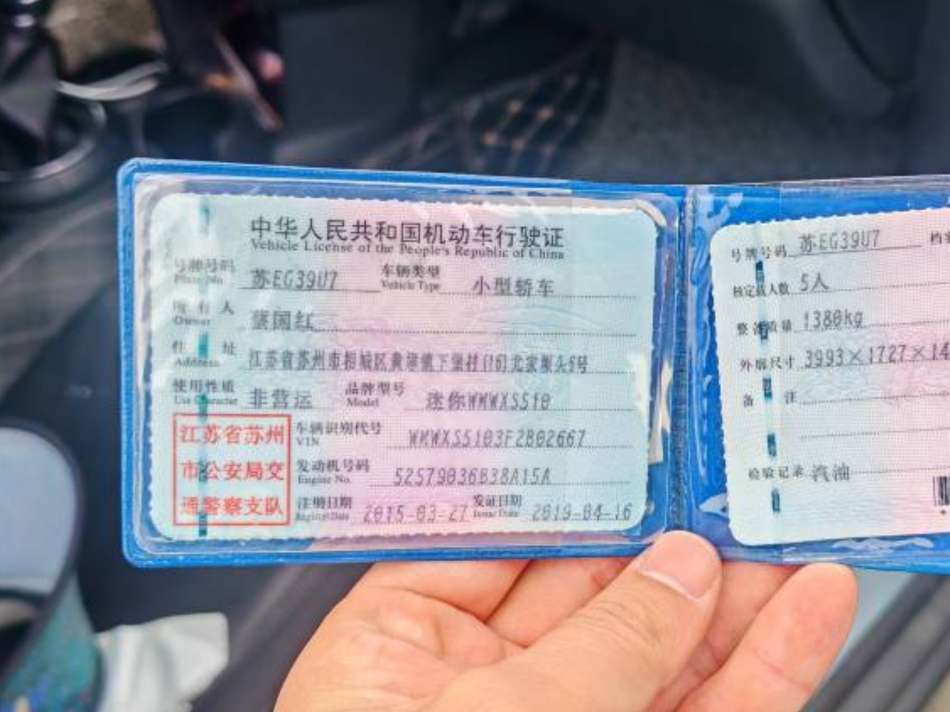 中华人民共和国机动车行驶证
Vehicle License of the People's Republic of China
号牌号码 苏EG39U7 车辆类型 小型轿车
Plate No. Vehicle Type
所有人 蔡国红
Owner
住址 江苏省苏州市相城区黄埭镇下堡村(16)北家坝头6号
Address
使用性质 非营运 品牌型号 迷你WMWXS510
Use Character Model
江苏省苏州
市公安局交
通警察支队
车辆识别代号 WMWXS5103F2B02667
VIN
发动机号码 52579036B38A15A
Engine No.
注册日期 2015-03-27 发证日期 2019-04-16
Register Date Issue Date
号牌号码 苏EG39U7 档案
核定载人数 5人
整备质量 1380kg
外廓尺寸 3993×1727×14
备注
检验记录 汽油